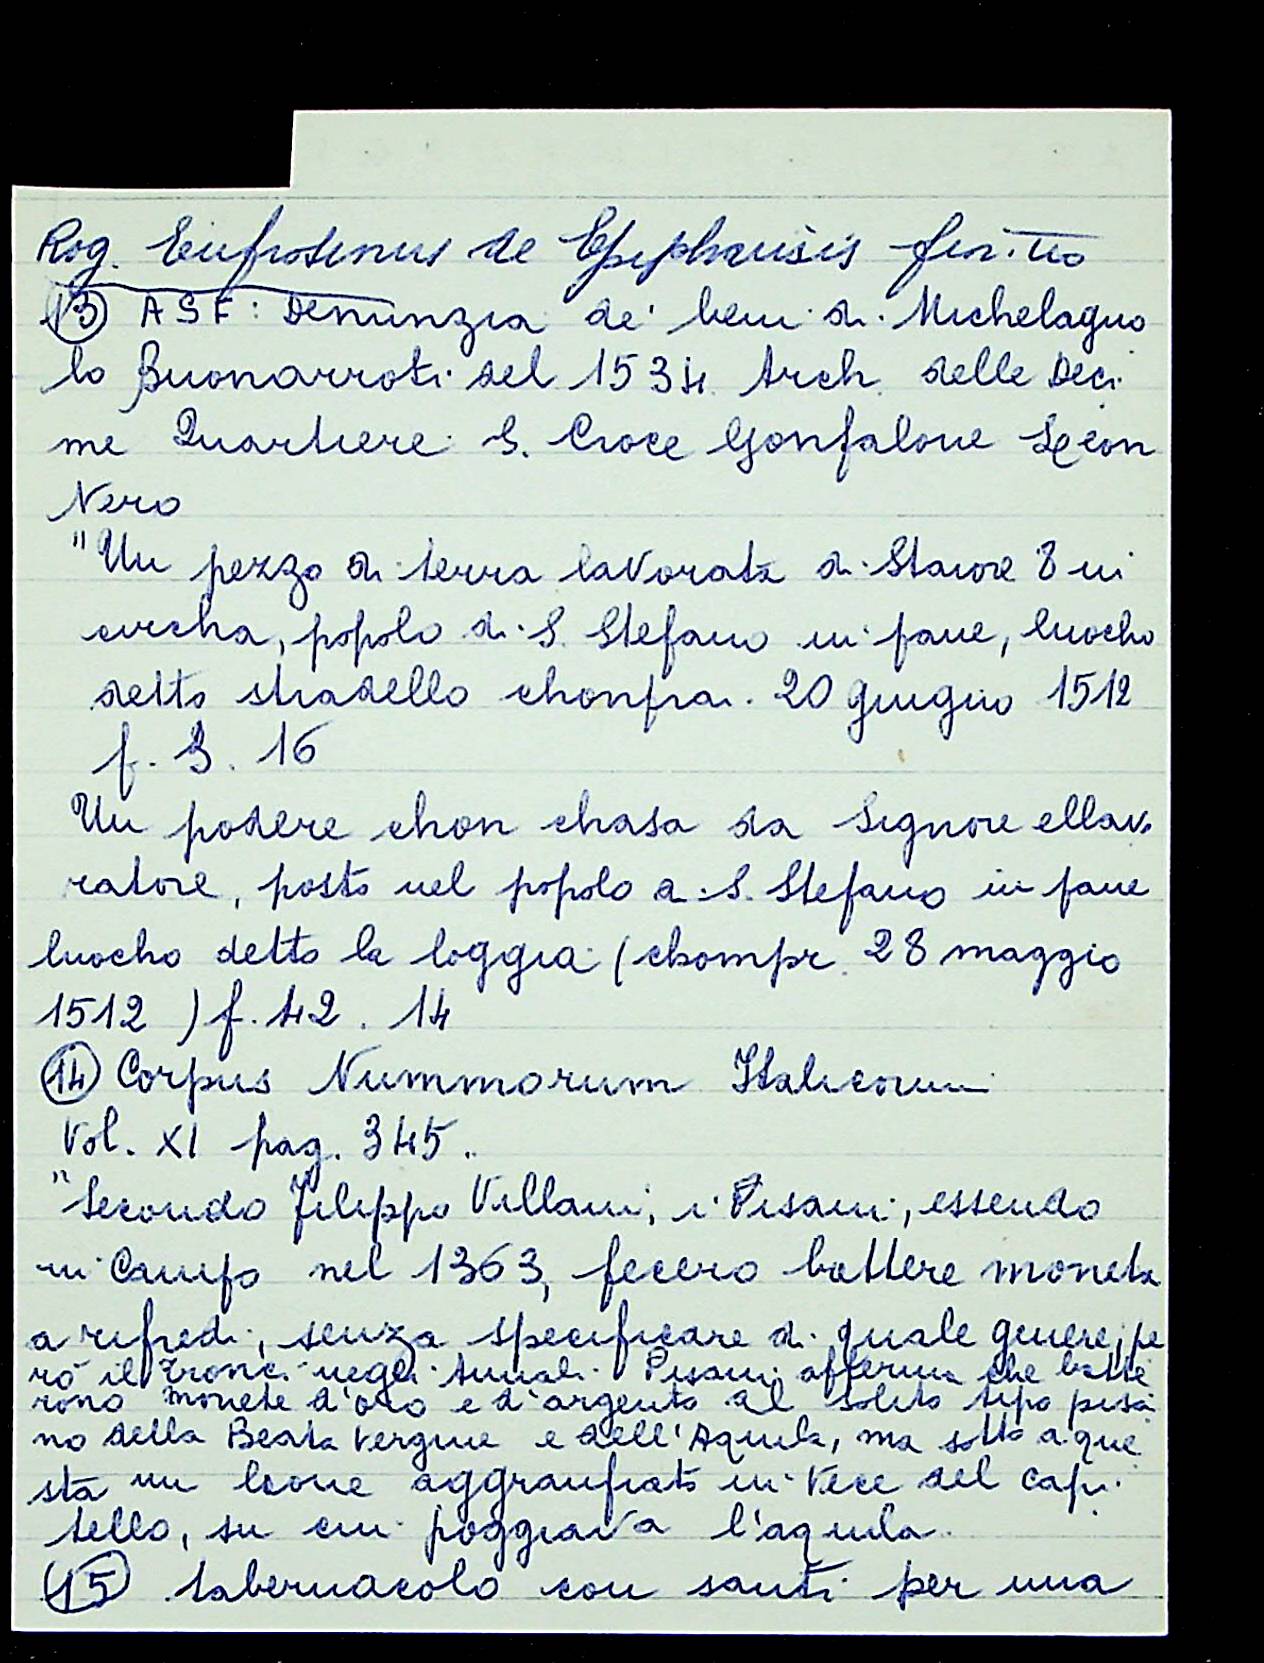 Rog. Eufrosinus de Epiphanisis
(13) ASF: Denunzia de' beni di Michelagno
lo Buonarroti del 1534 Arch. delle Deci
me Quartiere S. Croce Gonfalone Leon
Nero
"Un pezzo di terra lavorata di Staiore 8 in
circha, popolo di S. Stefano in pane, luocho
detto stradello chonprai. 20 giugnio 1512
f. 3. 16
Un podere chon chasa da Signore ellavo
ratore, posto nel popolo a S. Stefano in pane
luocho detto la loggia (chompr. 28 maggio
1512) f. 42. 14
(14) Corpus Nummorum Italicorum
Vol. XI pag. 345.
"Secondo Filippo Villani, i Pisani, essendo
in Campo nel 1363, fecero battere moneta
a rifredi, senza specificare di quale genere; pe
rò il Tronci negli Annali Pisani afferma che batte
rono monete d'oro e d'argento al solito tipo pisa
no della Beata Vergine e dell'Aquila, ma sotto a que
sta un leone aggranfiato in vece del capi
tello, su cui poggiava l'aquila.
(15) tabernacolo con santi per una